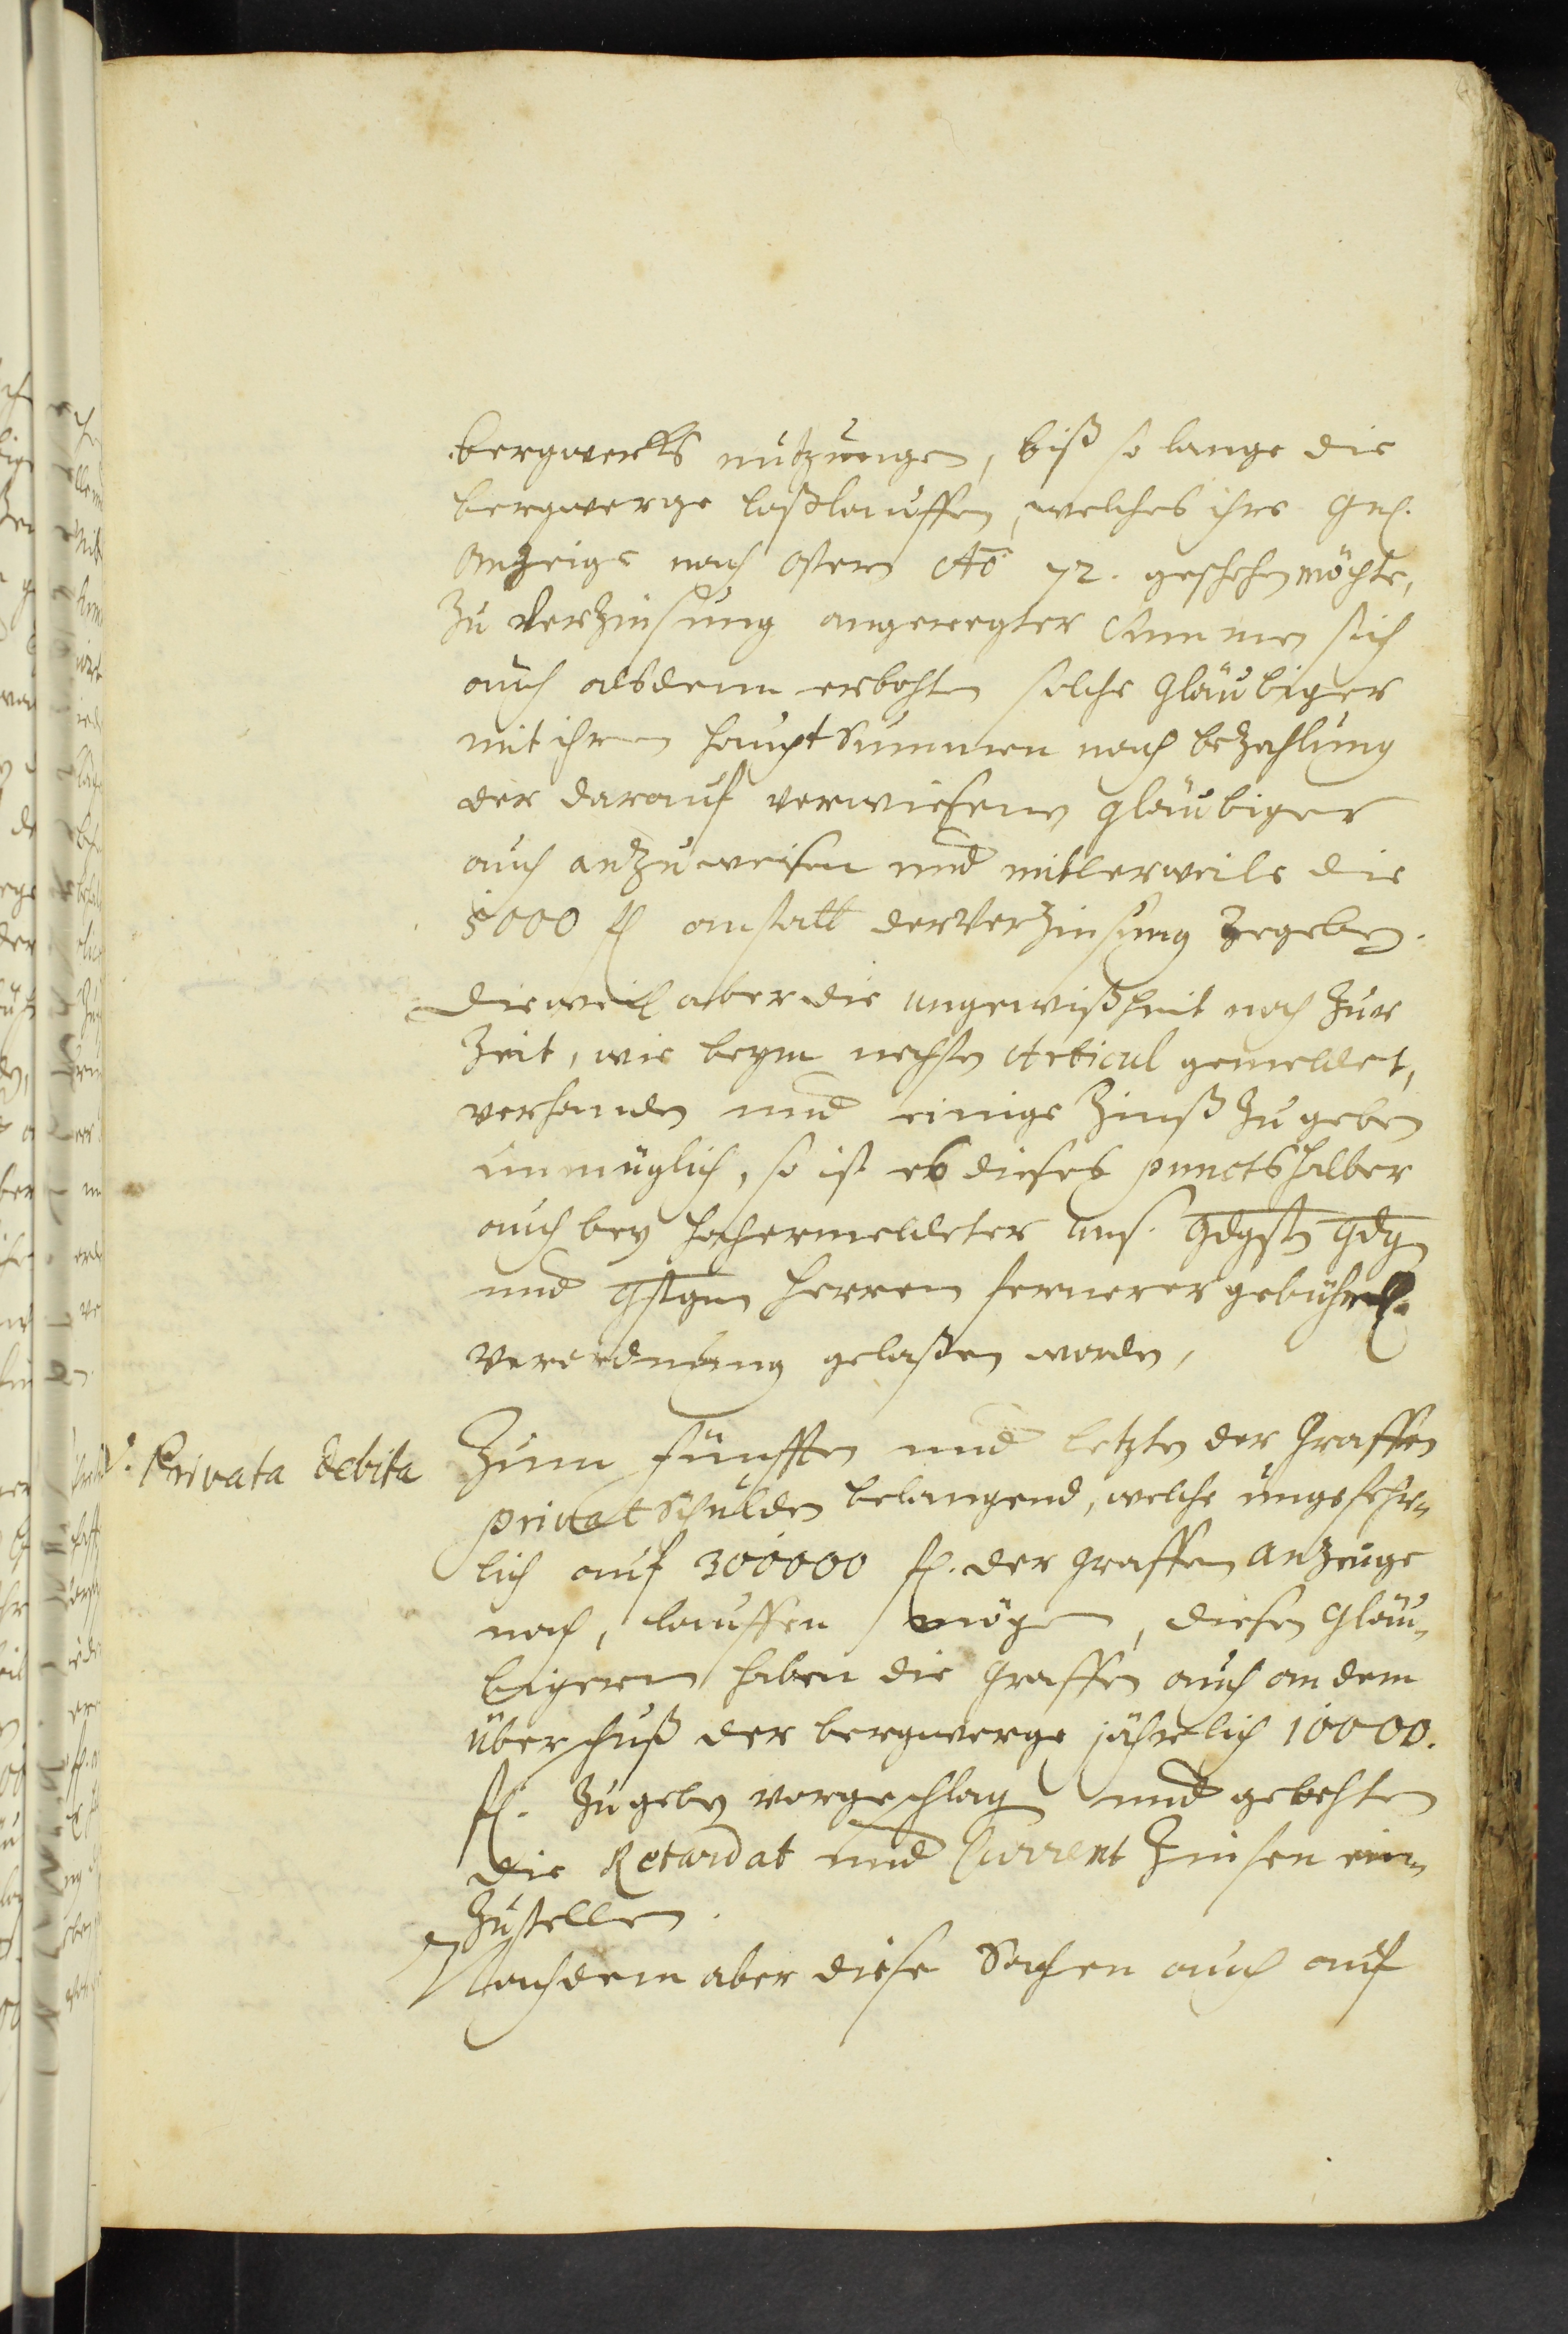 bergwerks nutzungen, biß so lange die
bergwerge loßlauffen, welches ihre gn.
Anzeige nach Ostern Ao 72. geschehen möchte,
Zu Verzinsung angeregter Summen sich
auch alsdenn erbohten solche gläubiger
mit ihren haupt Summen nach bezahlung
der darauf verwiesenen gläubiger
auch anzuweisen und mitlerweile die
5000 fl anstatt der Verzinsung zegeben.
Dieweil aber die ungewißheit noch zur
Zeit, wie beym nechsten Articul gemeldet,
verhanden und einige Zinß zu geben
unmüglich, so ist es dieses puncts halber
auch bey hochermeldeter uns. gdgstn gdgn
und gstgen herren fernerer gebührl.
verordnung gelaßen worden,
V. Privata debita
Zum fünfften und letzten der graffen
privat Schulden belangend, welche ungefehr-
lich auf 300000 fl. der graffen anzeuge
nach, lauffen mögen, diesen gläu-
bigern haben die graffen auch an dem
überschuß der bergwerge jährlich 10000.
fl. zu geben vorgeschlagen und gebehten
die Retardat und Current Zinsen ein-
zustellen.
Nachdem aber diese Sachen auch auf